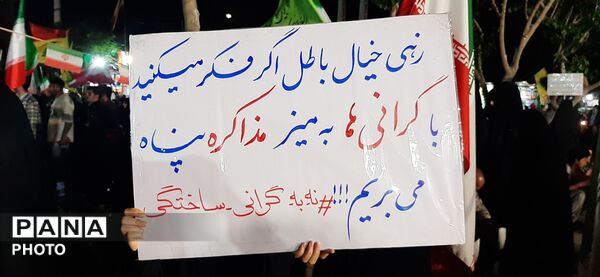 زهی خیال باطل اگر فکر میکنید
با گرانی ها به میز مذاکره پناه
می بریم!!! #نه_به_گرانی_ساختگی
PANA
PHOTO